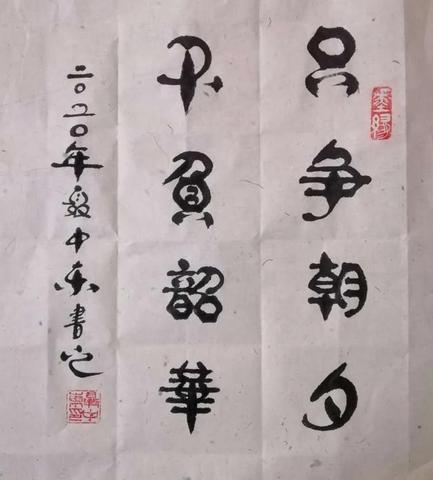 只争朝夕
不負韶華
二〇二〇年聂中东書之
墨缘